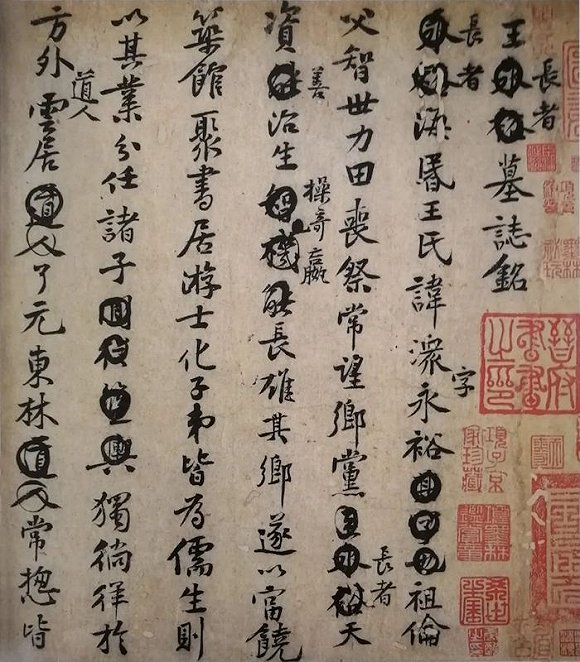 王長者墓誌銘
長者海昬王氏諱潨字永裕祖倫
父智世力田喪祭常望鄉黨長者天
資善治生操奇贏長雄其鄉遂以富饒
築館聚書居游士化子弟皆為儒生則
以其業分任諸子獨徜徉於
方外道人雲居了元東林常惣皆
晉府書畫之印